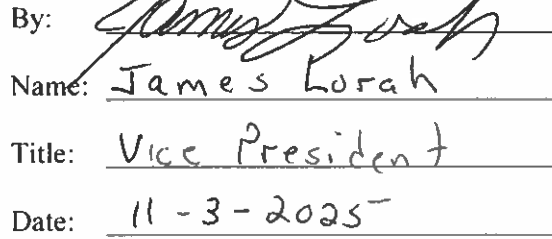 By: James Lorah
Name: James Lorah
Title: Vice President
Date: 11-3-2025